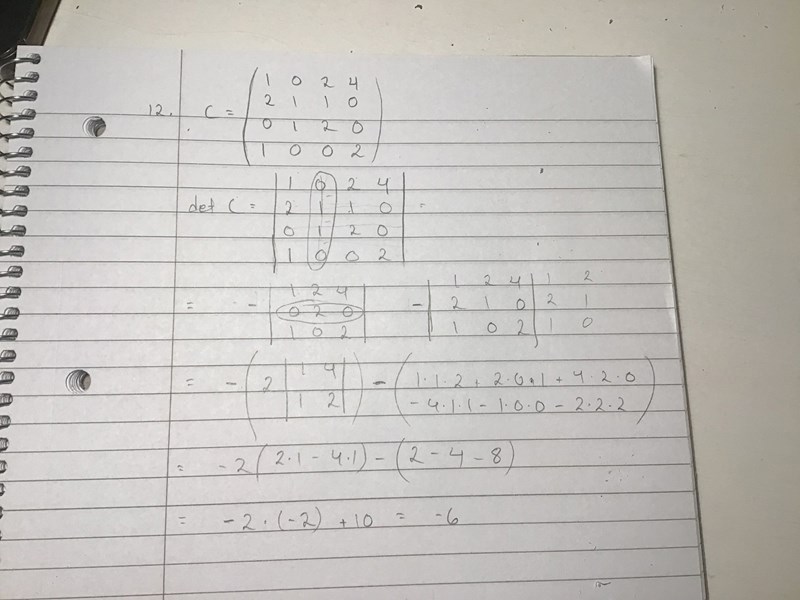 12. C = ( 1 0 2 4
2 1 1 0
0 1 2 0
1 0 0 2 )
det C = | 1 0 2 4 |
| 2 1 1 0 | =
| 0 1 2 0 |
| 1 0 0 2 |
= - | 1 2 4 | - | 1 2 4 | 1 2
| 0 2 0 | | 2 1 0 | 2 1
| 1 0 2 | | 1 0 2 | 1 0
= - ( 2 | 1 4 | ) - ( 1·1·2 + 2·0·1 + 4·2·0
| 1 2 | - 4·1·1 - 1·0·0 - 2·2·2 )
= -2 ( 2·1 - 4·1 ) - ( 2 - 4 - 8 )
= -2 · (-2) + 10 = -6